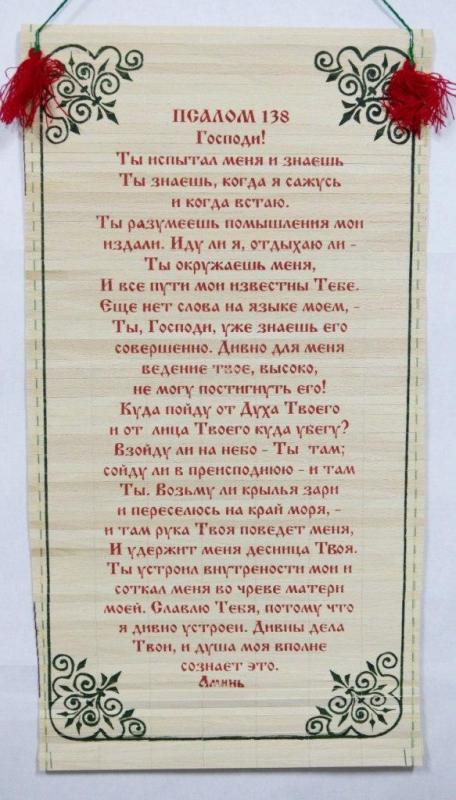 ПСАЛОМ 138
Господи!
Ты испытал меня и знаешь
Ты знаешь, когда я сажусь
и когда встаю.
Ты разумеешь помышления мои
издали. Иду ли я, отдыхаю ли -
Ты окружаешь меня,
И все пути мои известны Тебе.
Еще нет слова на языке моем, -
Ты, Господи, уже знаешь его
совершенно. Дивно для меня
ведение твое, высоко,
не могу постигнуть его!
Куда пойду от Духа Твоего
и от лица Твоего куда убегу?
Взойду ли на небо - Ты там;
сойду ли в преисподнюю - и там
Ты. Возьму ли крылья зари
и переселюсь на край моря, -
и там рука Твоя поведет меня,
И удержит меня десница Твоя.
Ты устроил внутрености мои и
соткал меня во чреве матери
моей. Славлю Тебя, потому что
я дивно устроен. Дивны дела
Твои, и душа моя вполне
сознает это.
Аминь